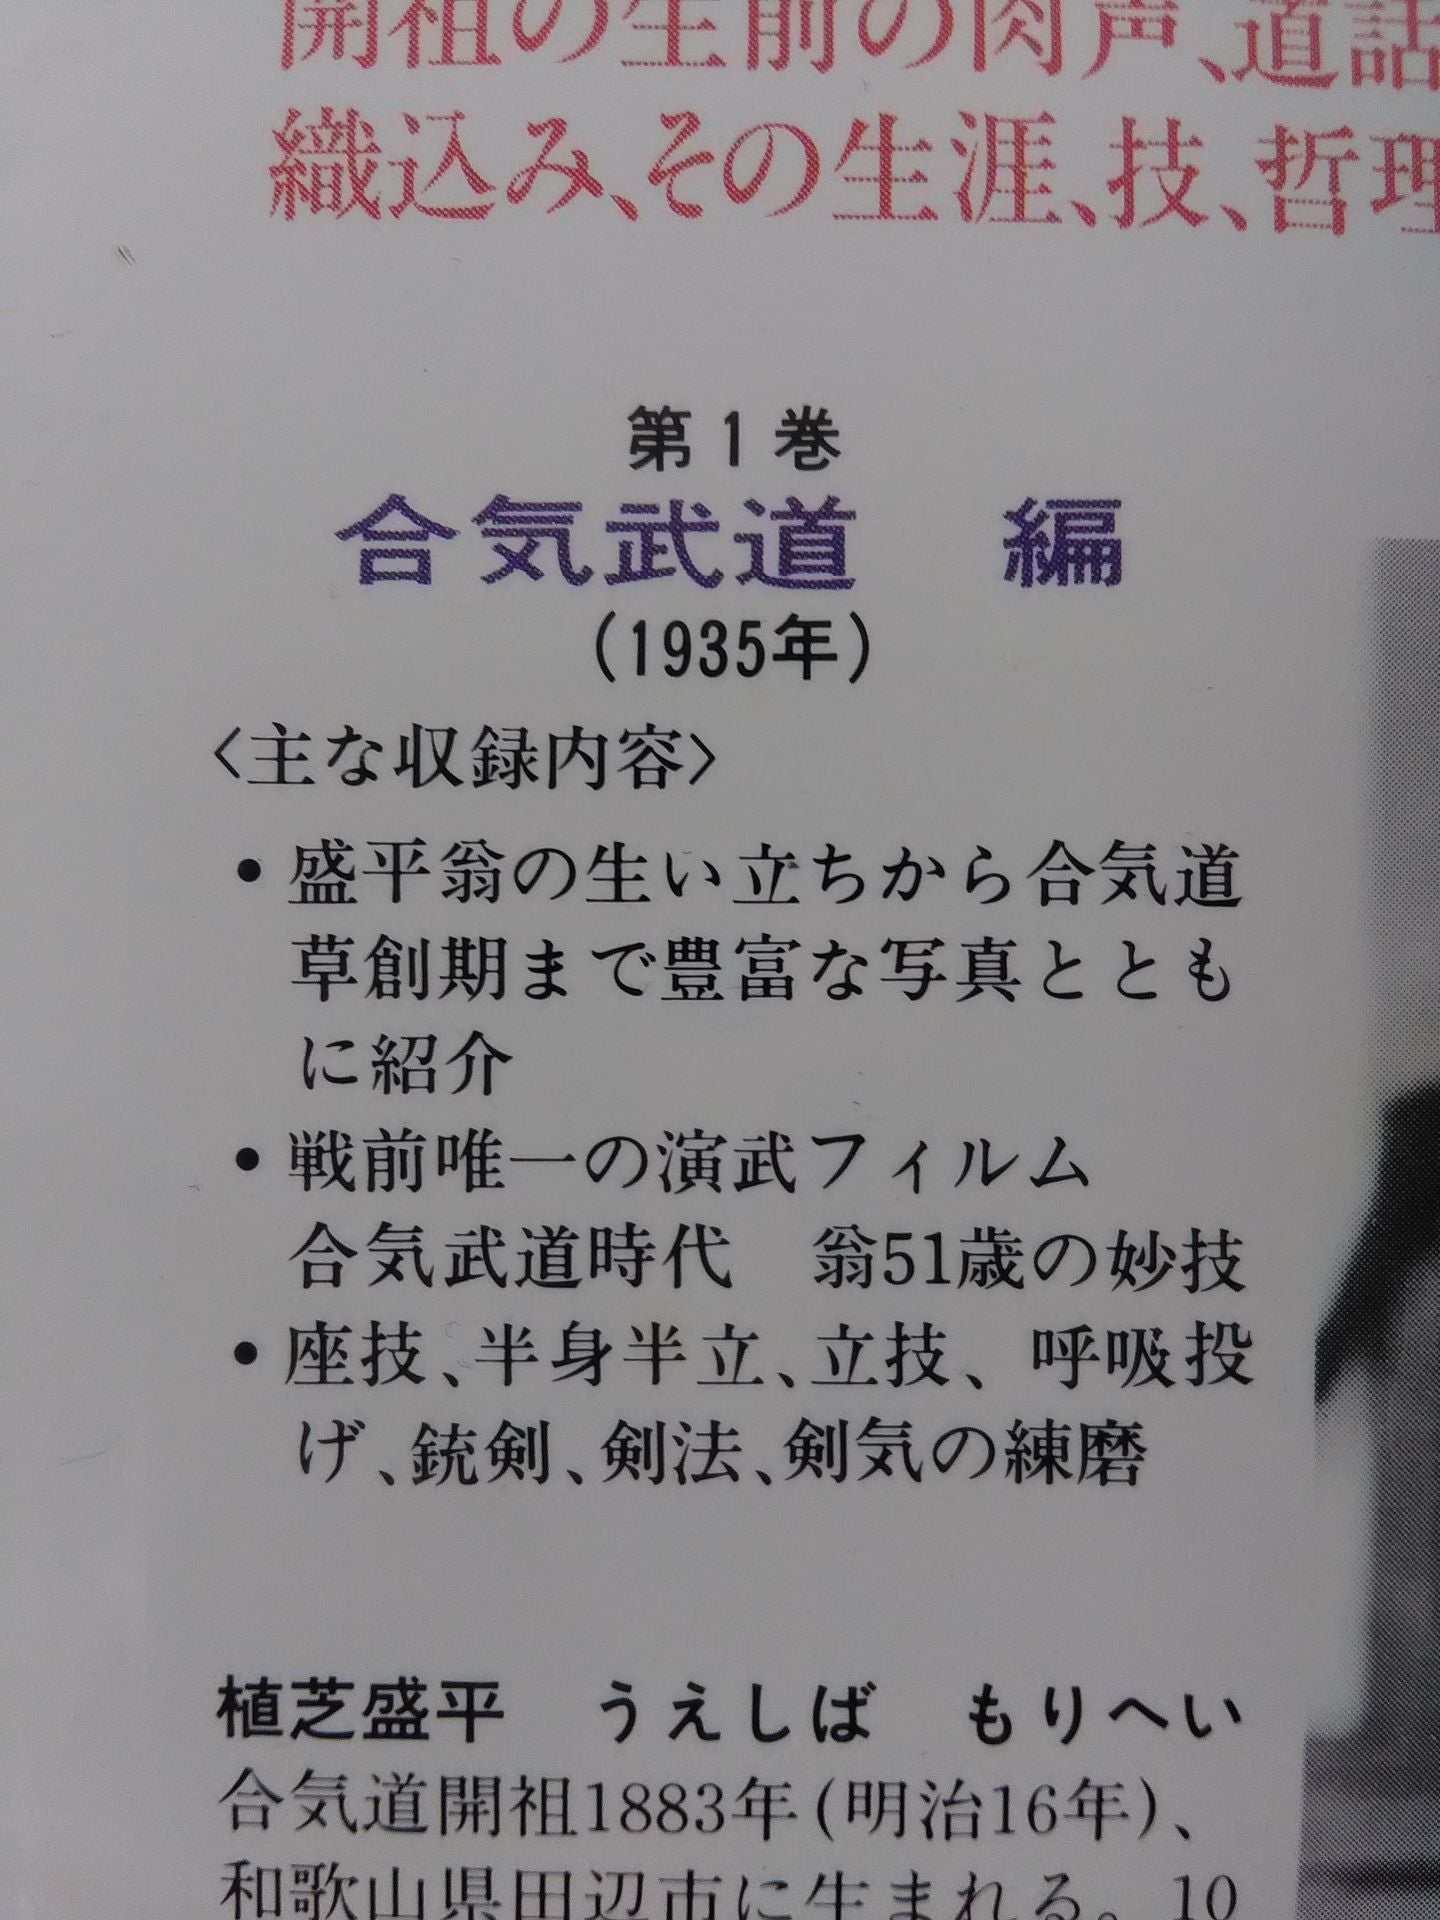 開祖の生前の肉声、道話
織込み、その生涯、技、哲理
第1巻
合気武道　編
(1935年)
〈主な収録内容〉
• 盛平翁の生い立ちから合気道
草創期まで豊富な写真ととも
に紹介
• 戦前唯一の演武フィルム
合気武道時代　翁51歳の妙技
• 座技、半身半立、立技、呼吸投
げ、銃剣、剣法、剣気の練磨
植芝盛平　うえしば　もりへい
合気道開祖1883年(明治16年)、
和歌山県田辺市に生まれる。10